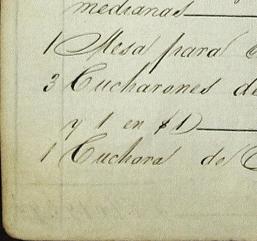 medianas
1 Mesa para
3 Cucharones de
y 1 en $1)
1 Cuchara de